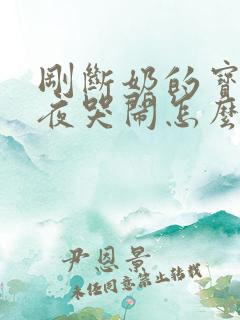 剛斷奶的寶
夜哭鬧怎麼
尹恩景
未經同意禁止轉載